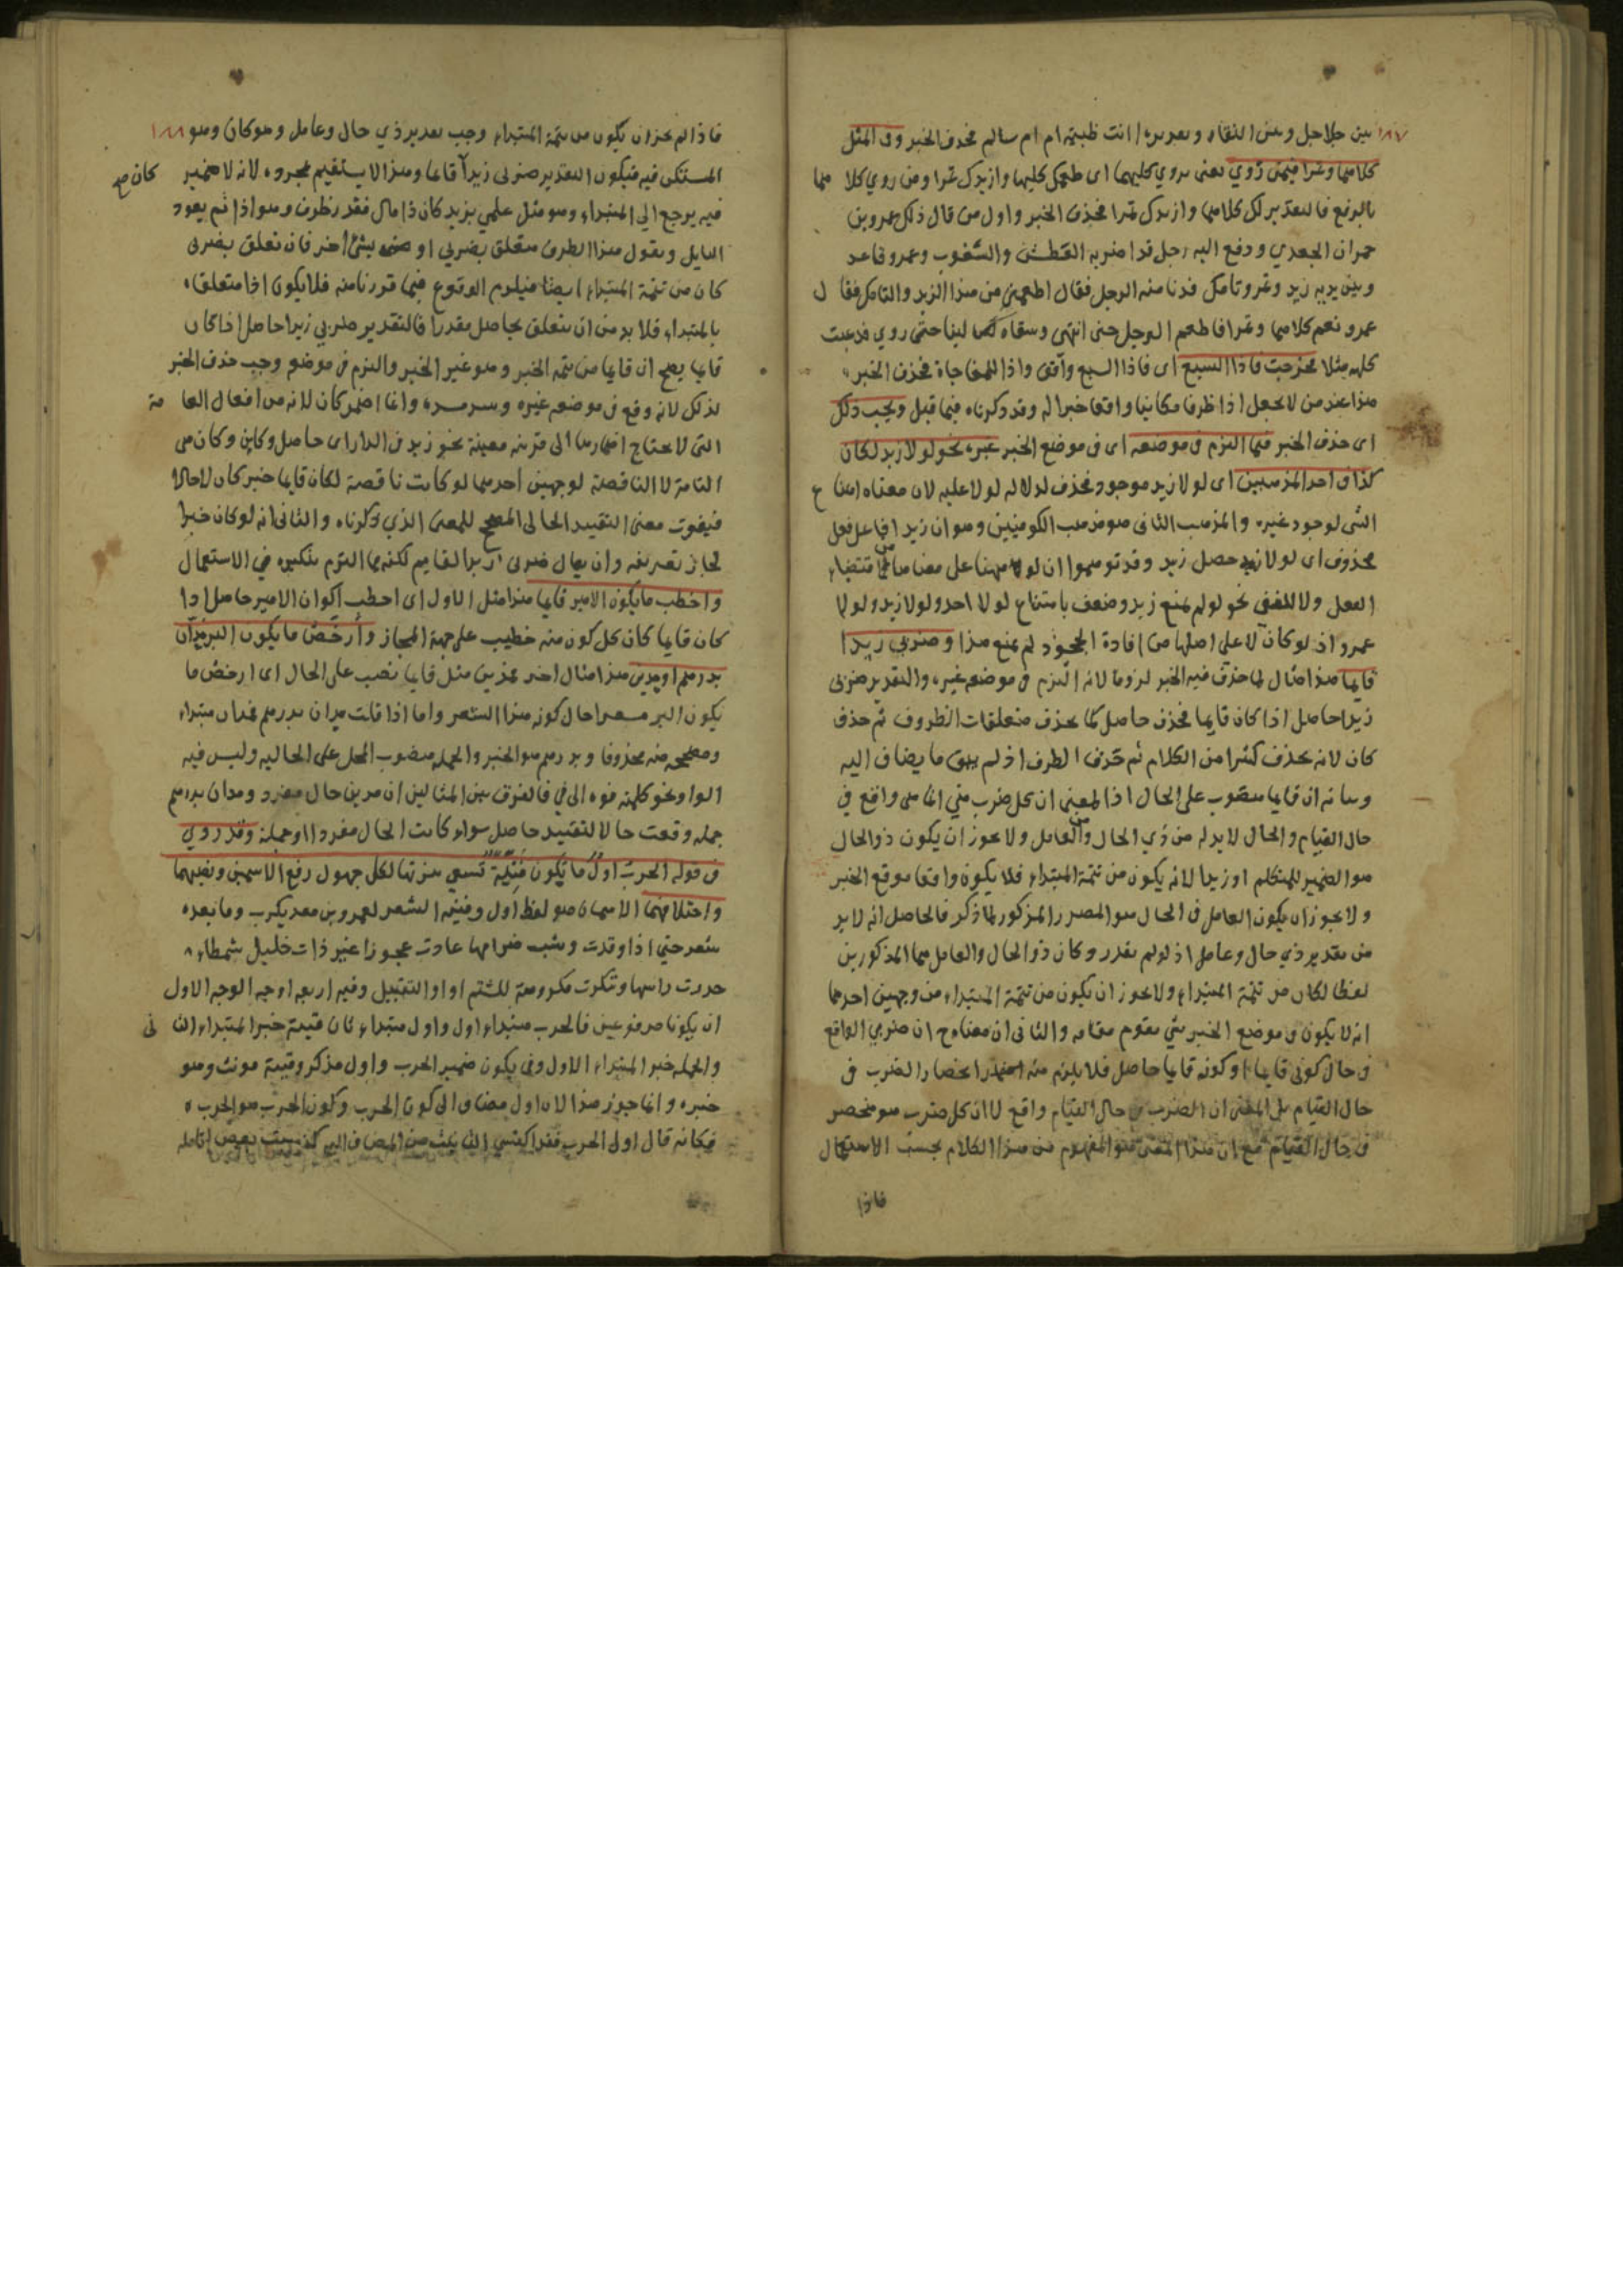 ١٨٧ بين جلاجل وبين النقاء وتقديره أانت ظبية ام ام سالم فحذف الخبر وفي المثل
كلاهما وتمرا فيمن روي يعنى يروي كليهما اى طعمك كليهما وازيدك تمرا ومن روي كلاهما
بالرفع فالتقدير لك كلاهما وازيدك تمرا فحذف الخبر واول من قال ذلك عمرو بن
حمران الجعدي ودفع اليه رجل قد اضربه العطش والسغوب وعمرو قاعد
وبين يديه زبد وتمر وتامك فدنا منه الرجل فقال اطعمني من هذا الزبد والتامك فقال
عمرو نعم كلاهما وتمرا فاطعم الرجل حتى انتهى وسقاه لبنا حتى روي فذهبت
كلمه مثلا فخرجت فاذا السبع اى فاذا السبع واقف واذا للمفاجاة فحذف الخبر
هذا عند من لا يجعل اذا ظرفا مكانيا واقعا خبرا له وقد ذكرناه فيما قبل ويجب ذلك
اى حذف الخبر فيما التزم فى موضعه اى فى موضع الخبر غيره نحو لولا زيد لكان
كذا فى احد المذهبين اى لولا زيد موجود فحذف لدلاله لولا عليه لان معناه امتناع
الشى لوجود غيره والمذهب الثانى هو مذهب الكوفيين وهو ان زيدا فاعل فعل
محذوف اى لولا حصل زيد وقد توهموا ان لو هيهنا على معناها من اقتضاء
الفعل ولا للنفى نحو لو لم يمنع زيد وضعف بامتناع لولا احد ولولا زيد ولولا
عمرو اذ لو كان لا على اصلها من افادة الجحود لم يمنع هذا وضربي زيدا
قايما هذا مثال لما حذف فيه الخبر لزوما لانه التزم فى موضعه غيره والتقدير ضربى
زيدا حاصل اذا كان قايما فحذف حاصل كما يحذف متعلقات الظروف ثم حذف
كان لانه يحذف كثيرا من الكلام ثم حذف الظرف اذ لم يبق ما يضاف اليه
وبيانه ان قايما منصوب على الحال اذ المعنى ان كل ضرب مني انما هى واقع في
حال القيام والحال لابد له من ذي الحال ومن العامل ولا يجوز ان يكون ذو الحال
هو الضمير للمتكلم او زيدا لانه يكون من تتمة المبتداء فلا يكون واقعا موقع الخبر
ولا يجوز ان يكون العامل فى الحال هو المصدر المذكور لما ذكر فالحاصل انه لابد
من تقدير ذي حال وعامل اذ لو لم يقدر وكان ذو الحال والعامل هما المذكورين
لفظا لكان من تتمة المبتداء ولا يجوز ان يكون من تتمة المبتداء من وجهين احدهما
انه لا يكون فى موضع الخبر شي يقوم مقامه والثانى ان معناه ح ان ضربي الواقع
فى حال كونى قايما او كونه قايما حاصل فلا يلزم منه انحصار الضرب فى
حال القيام بل المعنى ان الضرب فى حال القيام واقع لا ان كل ضرب هو منحصر
فى حال القيام مع ان هذا المعنى هو المفهوم من هذا الكلام بحسب الاستعمال
فاذا
فاذا لم يجز ان يكون من تتمة المبتداء وجب تقدير ذي حال وعامل وهو كان وهو ١٨٨
المستكن فيه فيكون التقدير ضربى زيدا قايما وهذا لا يستقيم بمجرده لانه لا ضمير كان صح
فيه يرجع الي المبتداء وهو مثل علمي بزيد كان ذا مال فقدر ظرف وهو اذا ثم يعود
السايل ويقول هذا الظرف متعلق بضربي او بشئ اخر فان تعلق بضربى
كان من تتمة المبتداء ايضا فيلزم الوقوع فيما فررنا منه فلا يكون اذا متعلقا
بالمبتداء فلابد من ان يتعلق بحاصل مقدرا فالتقدير ضربي زيدا حاصل اذا كان
قايما يصح ان قايما من تتمة الخبر وهو غير الخبر والتزم فى موضع وجب حذف الخبر
لذلك لانه وقع فى موضعه غيره وانما اضمر كان لانه من افعال العامة
التى لا يحتاج اضمارها الى قرينة معينة نحو زيد فى الدار اى حاصل وكاين وكان هى
التامة لا الناقصة لوجهين احدهما لو كانت ناقصة لكان قايما خبر كان لا حالا
فيفوت معنى التقييد الحالى المصحح للمعنى الذي ذكرناه والثانى انه لو كان خبرا
لجاز تعريفه وان يقال ضربى زيدا القايم لكنهم التزم تنكيره في الاستعمال
واخطب ما يكون الامير قايما هذا مثل الاول اى اخطب اكوان الامير حاصل اذا
كان قايما كان كل كون منه خطيب على جهة المجاز وارخص ما يكون البر مدان
بدرهم او مدين هذا مثال اخر بمدين مثل قايما نصب على الحال اى ارخص ما
يكون البر مسعرا حال كونه هذا السعر واما اذا قلت مدان بدرهم فمدان مبتداء
ومصححه منه محذوفا وبدرهم هو الخبر والجملة منصوب المحل على الحاليه وليس فيه
الواو نحو كلمته فوه الى في فالفرق بين المثالين ان مدين حال مفرد ومدان بدرهم
جمله وقعت حالا لتقييد حاصل سواء كانت الحال مفردا او جملة وقد روي
فى قوله الحرب اول ما تكون فتية تسعى ببزتها لكل جهول رفع الاسمين ونصبهما
واختلافهما الاسمان هو لفظ اول وفتيه الشعر لعمرو بن معديكرب وما بعده
شعر حتي اذا وقدت وشب ضرامها عادت عجوزا غير ذات خليل شمطاء
جزرت راسها وتنكرت مكروهة للشم او التقبيل وفيه اربعه اوجه الوجه الاول
ان يكونا مرفوعين فالحرب مبتداء اول واول مبتداء ثان فتية خبر المبتداء الثانى
والجملة خبر المبتداء الاول وفى يكون ضمير الحرب واول مذكر وفتية مونث وهو
خبره وانما جوز هذا لان اول مضاف الى كون الحرب وكون الحرب هو الحرب
فكانه قال اولى الحرب فقد اكتسي التانيث من المضاف اليه كذهبت بعض انامله